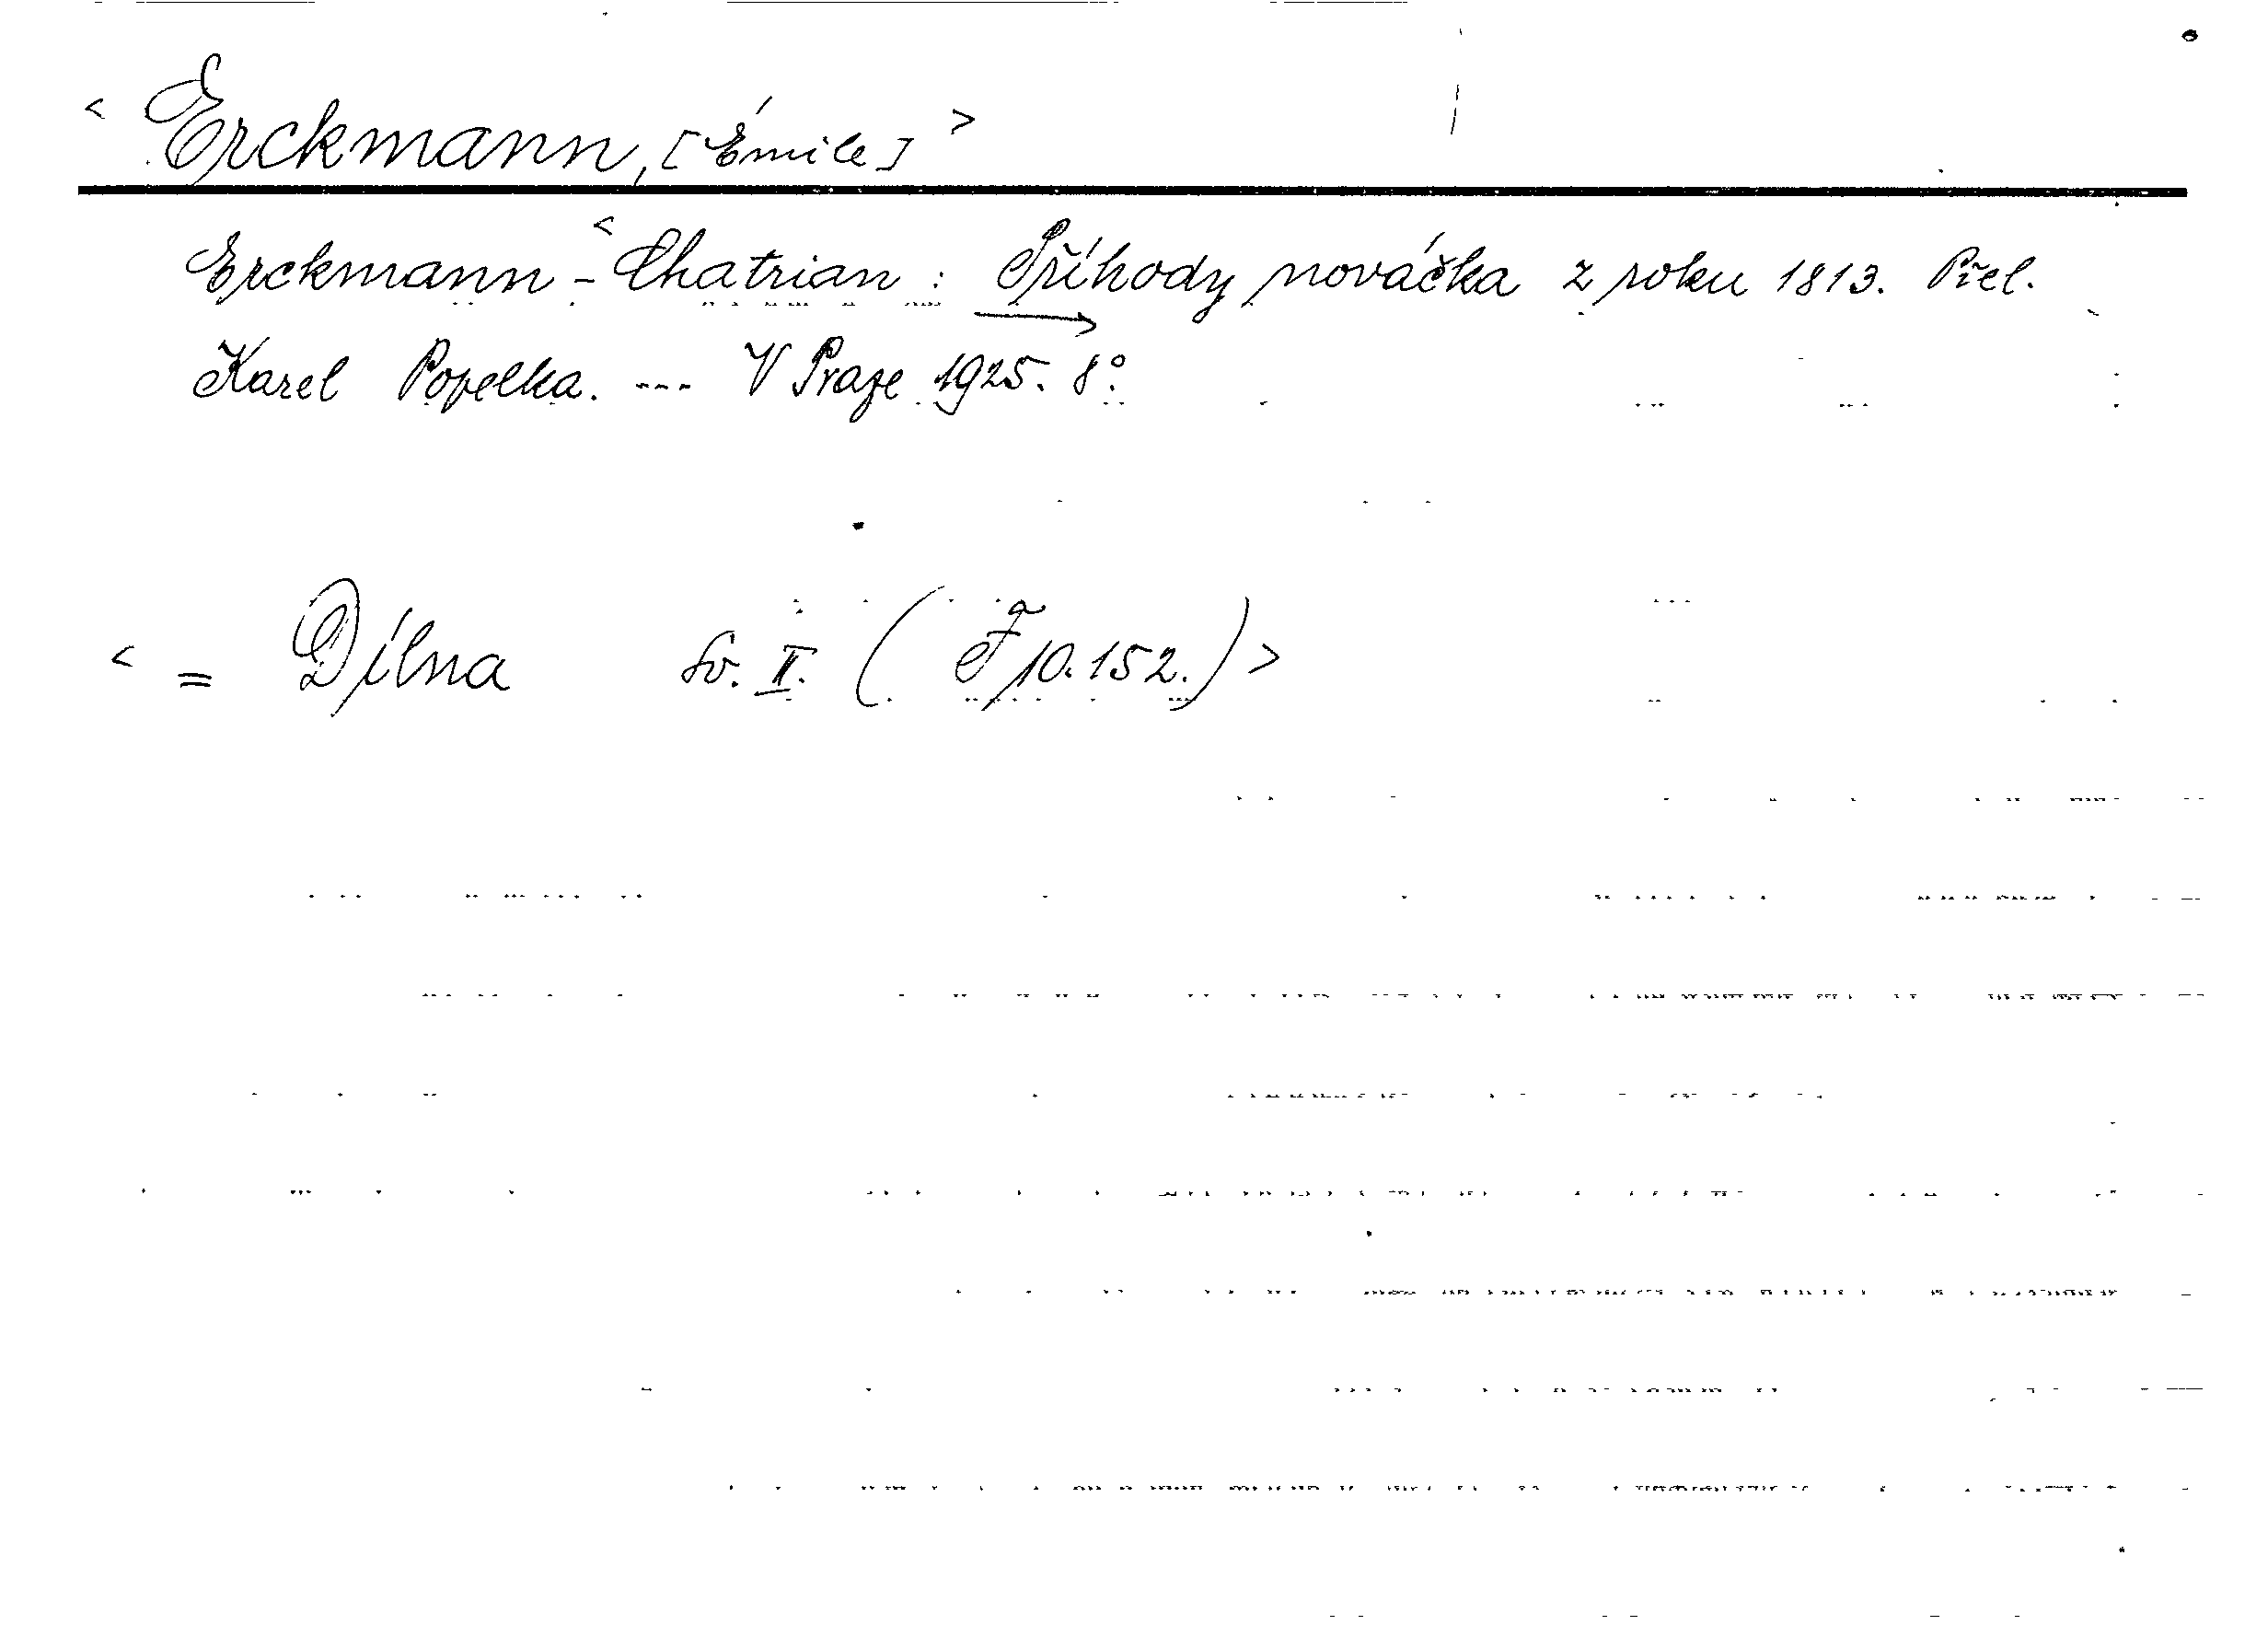 < Erckmann, [Émile] >
Erckmann - < Chatrian : Příhody nováčka z roku 1813. Přel.
Karel Popelka. --- V Praze 1925. 8°.
< = Dílna sv. II. ( F 10.152.) >